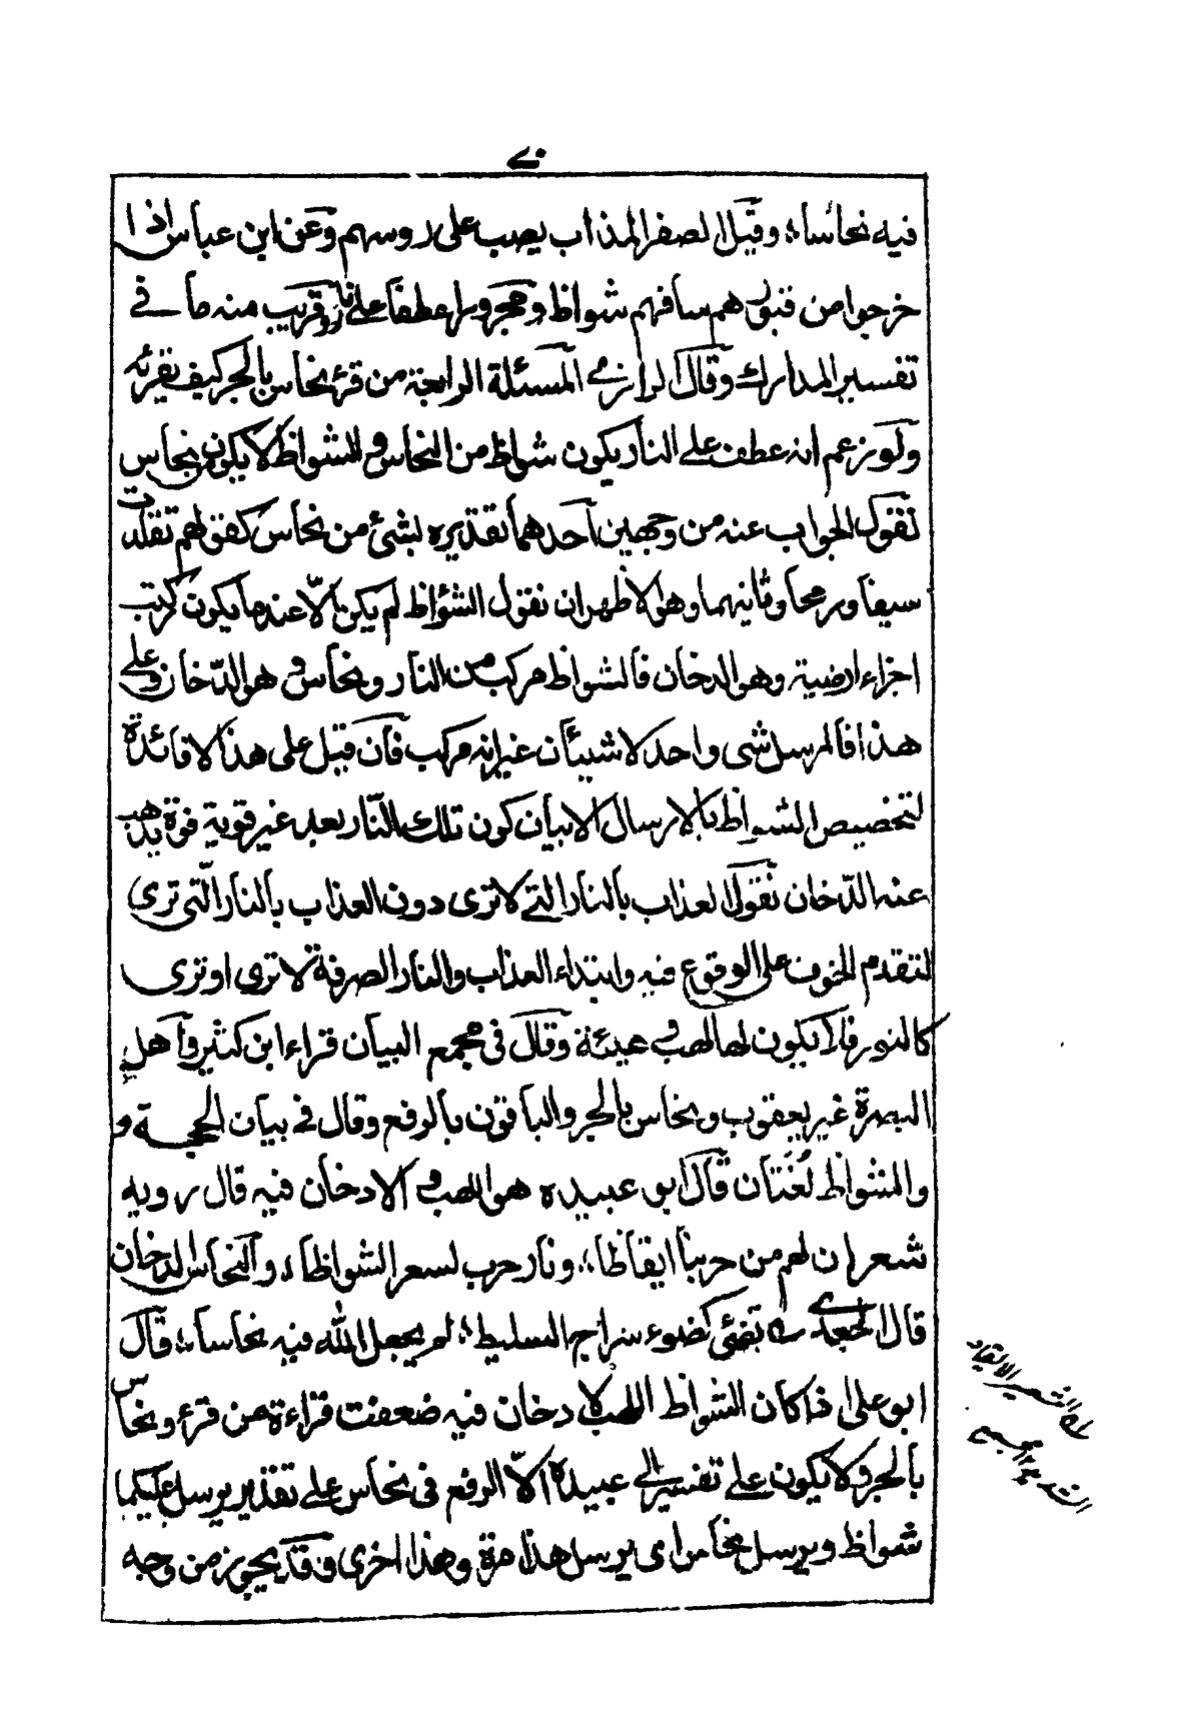 ٧٠
فيه نحاسا؛ وقيل الصفر المذاب يصب على روسهم وعن ابن عباس اذا
خرجوا من قبورهم ساقهم شواظ و مجرورا عطفا على نار وقريب منه ما في
تفسير المدارك وقال الرازي المسئلة الرابعة من قرئ نحاس بالجر كيف نقرئه
ولو زعم انه عطف على النار يكون شواظ من النحاس والشواظ لا يكون من نحاس
نقول الجواب عنه من وجهين احدهما تقديره بشئ من نحاس كقولهم تقلدت
سيفا ورمحا وثانيهما وهو الاظهر ان نقول الشؤاظ لم يكن الّا عند ما يكون كرتب
اجزاء ارضية وهو الدخان فالشواظ مركب من النار ونحاس و هو الدّخان وعلى
هذا فالمرسل شى واحد لا شيئان غير انه مركب فان قيل على هذا لا فائدة
لتخصيص الشواظ بالارسال الا بيان كون تلك النّار بعد غير قوية قوة يذهب
عنه الدّخان نقول العذاب بالنار التي لا ترى دون العذاب بالنار الّتي ترى
لتقدم الخوف على الوقوع فيه وابتداء العذاب والنار الصرفة لا ترى او ترى
كالنور فلا يكون لها لهب و هيئة وقال فى مجمع البيان قراء ابن كثير و اهل
البصرة غير يعقوب ونحاس بالجر والباقون بالرفع وقال في بيان الحجة و
والشواظ لُغَتان قال ابو عبيده هو اللهب و الا دخان فيه قال رويه
شعر ان لهم من حربنا ايقاظا؛ ونار حرب لسعر الشواظا، والنحاس الدخان
قال الجعدي تضئ كضوء سراج السليط؛ لم يجعل الله فيه نحاسا؛ قال
ابو على اذا كان الشواظ اللهب لا دخان فيه ضعفت قراءة من قرء ونحاس
بالجر ولا يكون على تفسير ابى عبيدة الّا الرفع فى نحاس على تقدير يرسل عليكما
شواظ ويرسل نحاس اى يرسل هذا مرة وهذا اخرى و قد يجوز من وجه